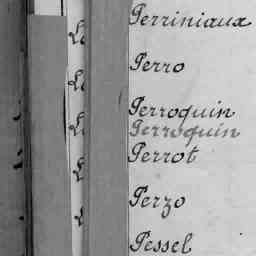 Perriniaux
Perro
Perroquin
Perroquin
Perrot
Perzo
Pessel